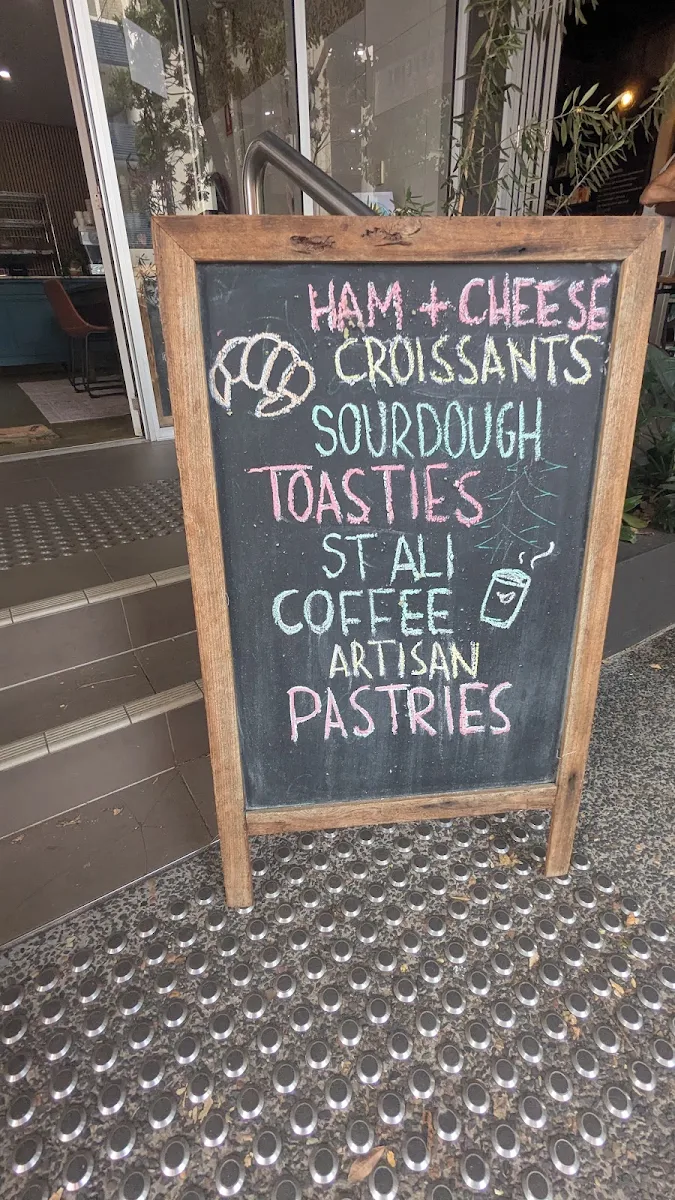 HAM + CHEESE
CROISSANTS
SOURDOUGH
TOASTIES
ST ALI
COFFEE
ARTISAN
PASTRIES